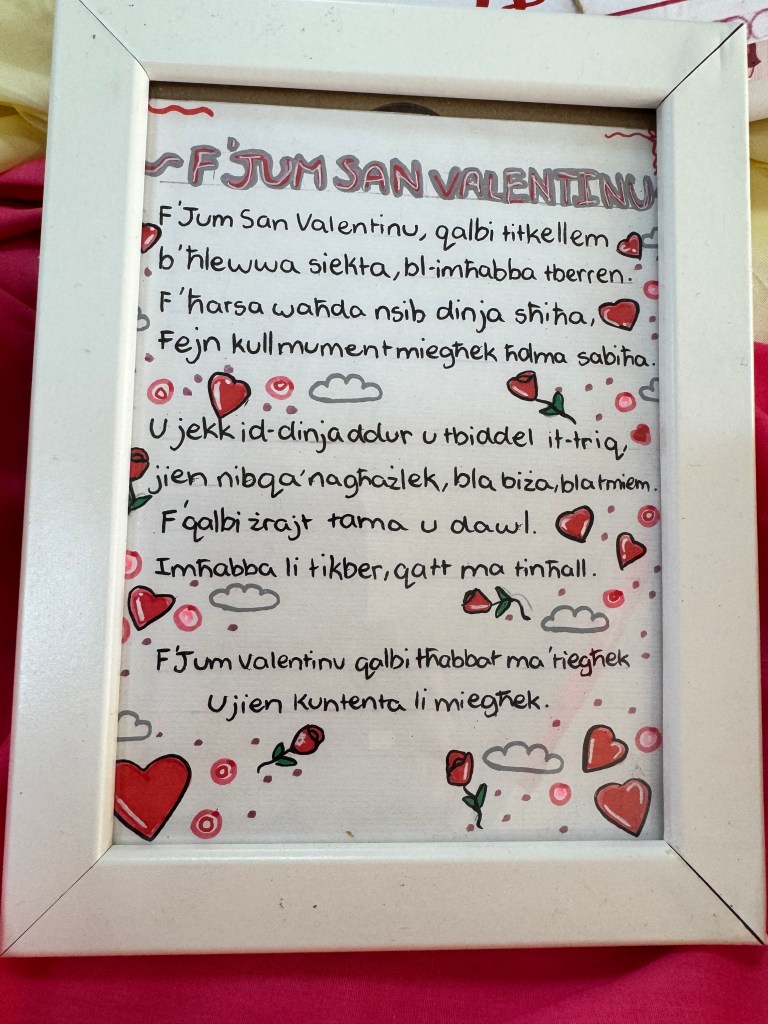 F'JUM SAN VALENTINU
F'Jum San Valentinu, qalbi titkellem
b'ħlewwa siekta, bl-imħabba tberren.
F'ħarsa waħda nsib dinja sħiħa,
Fejn kull mument miegħek ħolma sabiħa.
U jekk id-dinja ddur u tbiddel it-triq,
jien nibqa' nagħażlek, bla biża, bla tmiem.
F'qalbi żrajt tama u dawl.
Imħabba li tikber, qatt ma tinħall.
F'Jum Valentinu qalbi tħabbat ma' tiegħek
U jien kuntenta li miegħek.